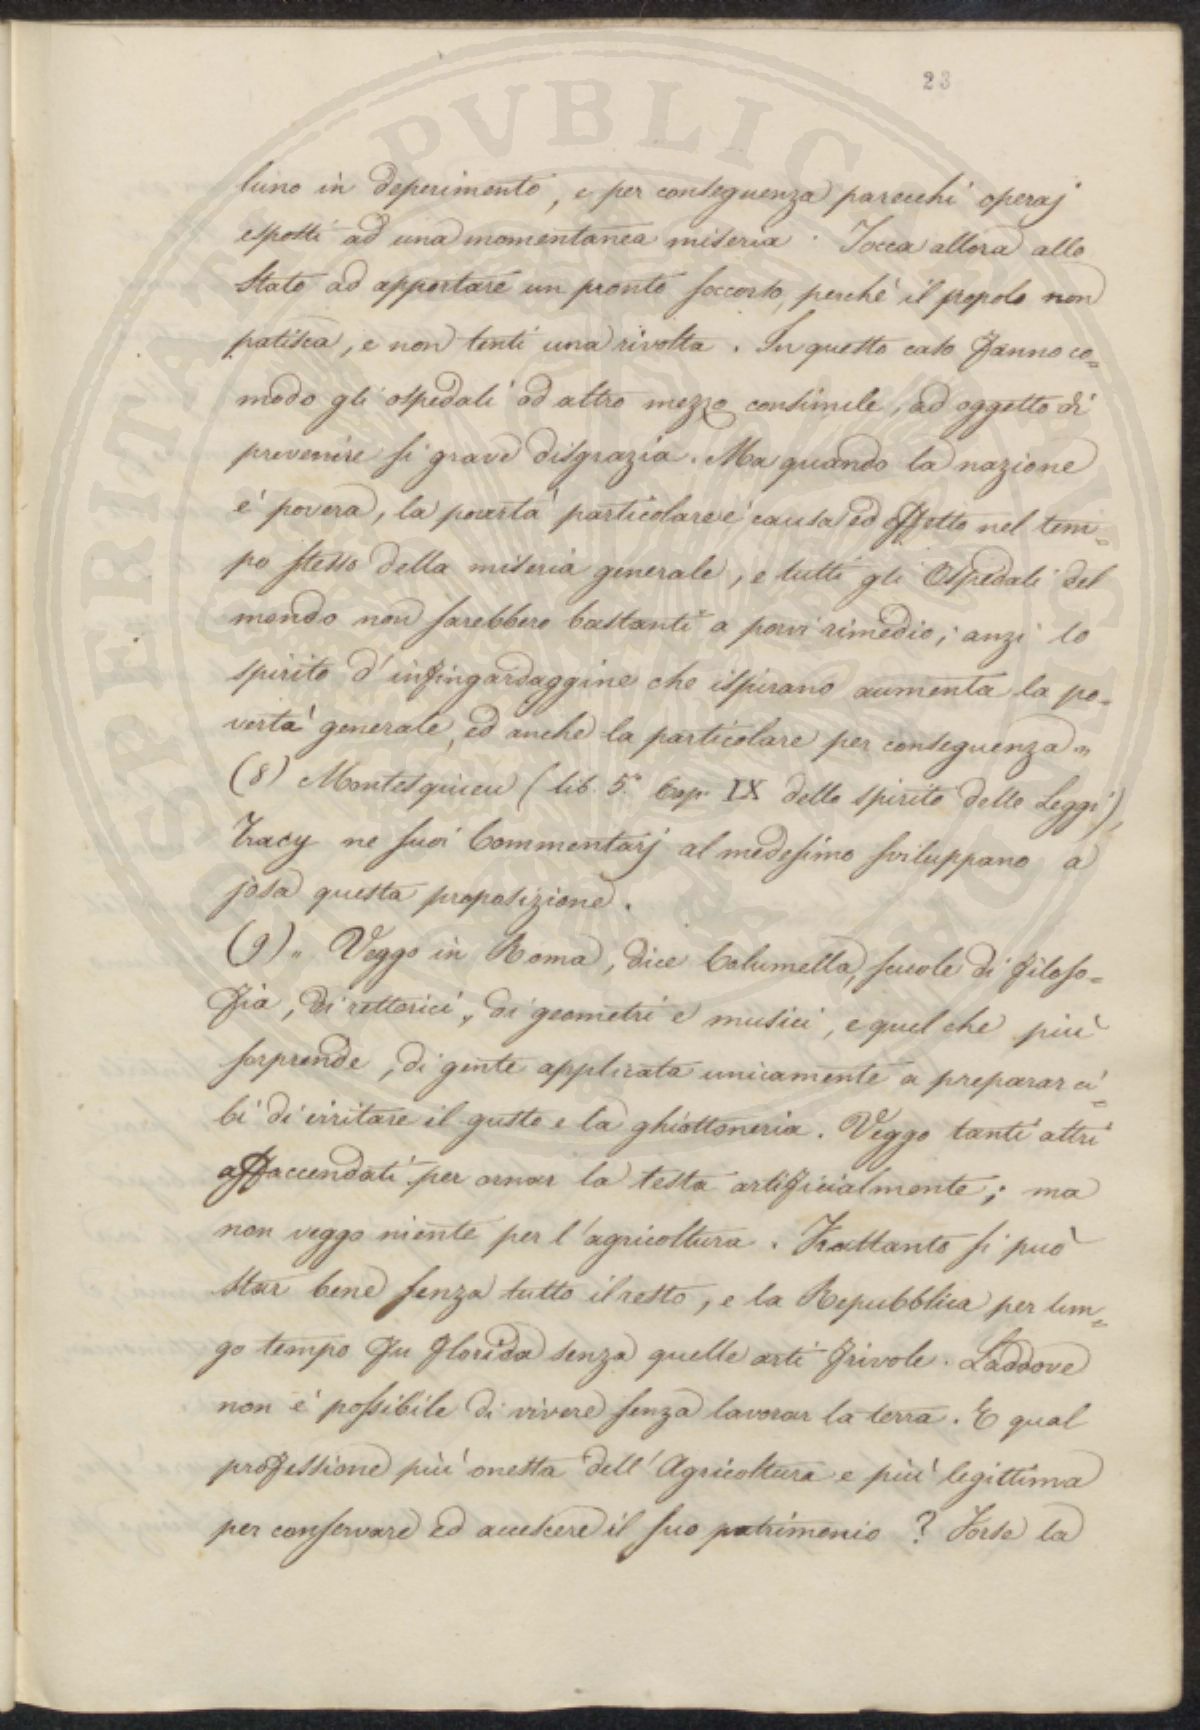 23
luno in deperimento, e per conseguenza parecchi operaj
esposti ad una momentanea miseria. Tocca allora allo
Stato ad apportare un pronto soccorso, perchè il popolo non
patisca, e non tenti una rivolta. In questo caso fanno co=
modo gli ospedali od altro mezzo consimile, ad oggetto di
prevenire si grave disgrazia. Ma quando la nazione
è povera, la povertà particolare è causa ed effetto nel tem=
po stesso della miseria generale, e tutti gli Ospedali del
mondo non sarebbero bastanti a porvi rimedio; anzi lo
spirito d'infingardaggine che ispirano aumenta la po=
vertà generale, ed anche la particolare per conseguenza„
(8) Montesquieu (lib. 5.° Cap. IX dello spirito delle Leggi),
Tracy ne suoi Commentarj al medesimo sviluppano a
josa questa proposizione.
(9) „ Veggo in Roma, dice Columella, scuole di filoso=
fia, di rettorici, di geometri e musici, e quel che più
sorprende, di gente applicata unicamente a preparar ci=
bi di irritare il gusto e la ghiottoneria. Veggo tanti altri
affaccendati per ornar la testa artificialmente; ma
non veggo niente per l'agricoltura. Frattanto si può
star bene senza tutto il resto, e la Repubblica per lun=
go tempo fu florida senza quelle arti frivole. Laddove
non è possibile di vivere senza lavorar la terra. E qual
professione più onesta dell'Agricoltura e più legittima
per conservare ed accescere il suo patrimonio? Forse la
SPERITAT
PVBLICA